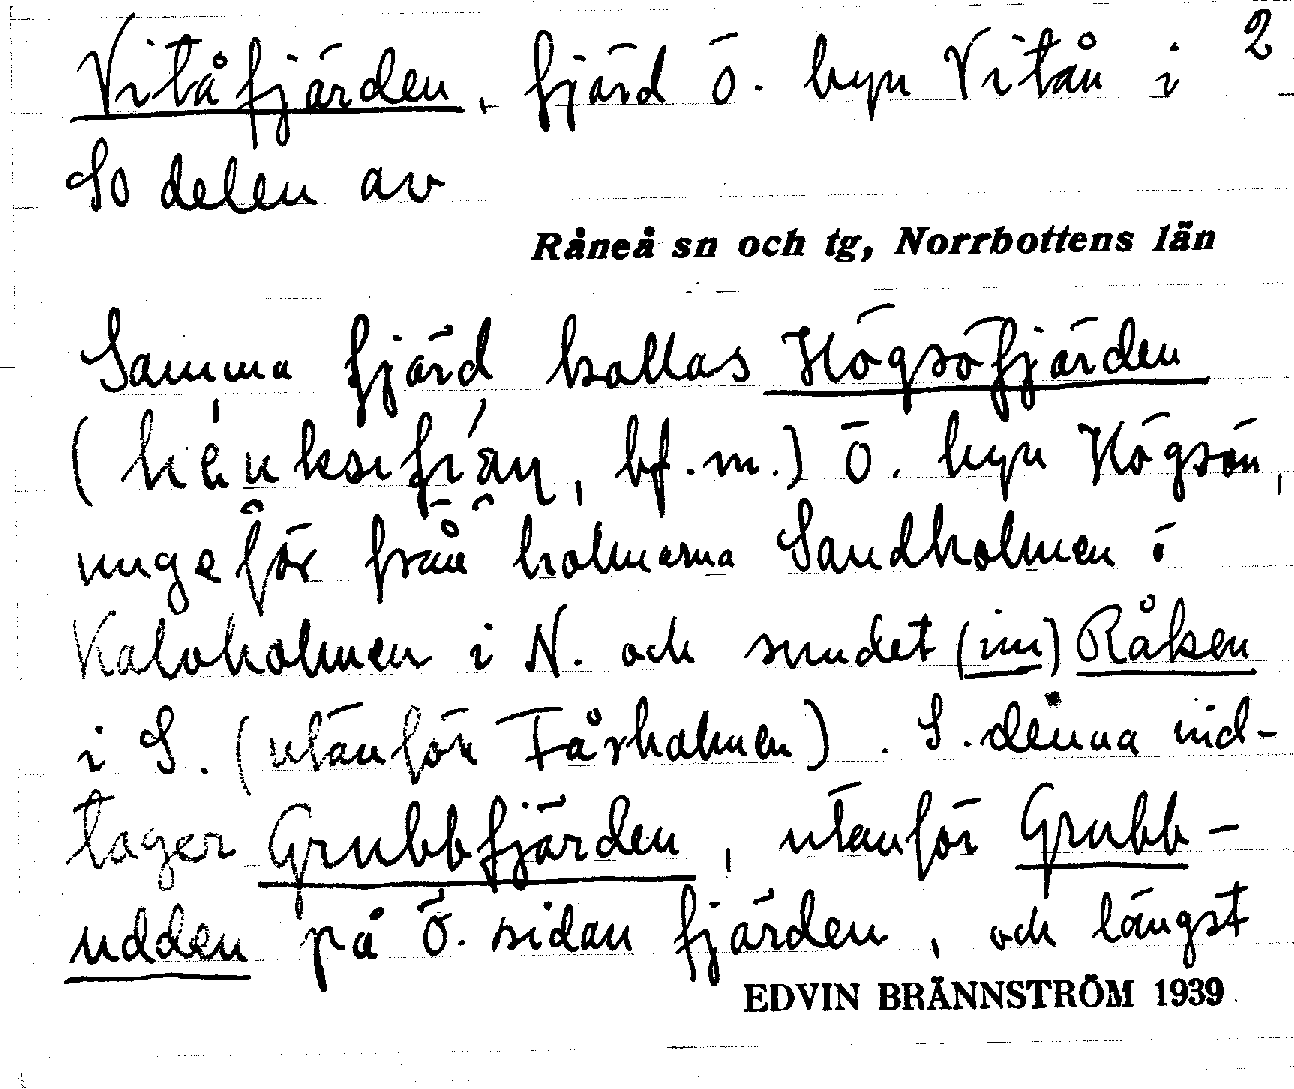 Vitåfjärden, fjärd ö. byn Vitån i 2
So delen av
Råneå sn och tg, Norrbottens län
Samma fjärd kallas Högsöfjärden
( bf. m.) ö. byn Högsön,
ungefär från holmarna Sandholmen o
Kalvholmen i N. och sundet (inn) Råksen
i S. (utanför Fårholmen). S. denna vid-
tager Grubbfjärden, utanför Grubb-
udden på ö. sidan fjärden, och längst
EDVIN BRÄNNSTRÖM 1939